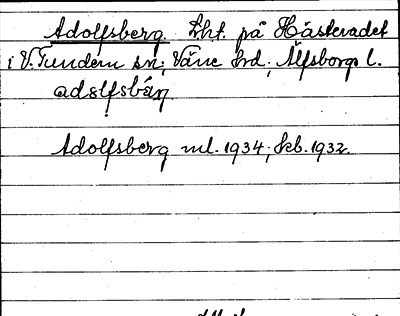 Adolfsberg. Lht. på Håsteradet
i V. Tunhem sn; Väne hd; Älfsborgs l.
adolfsbärj
Adolfsberg ml. 1934; Skb. 1932.